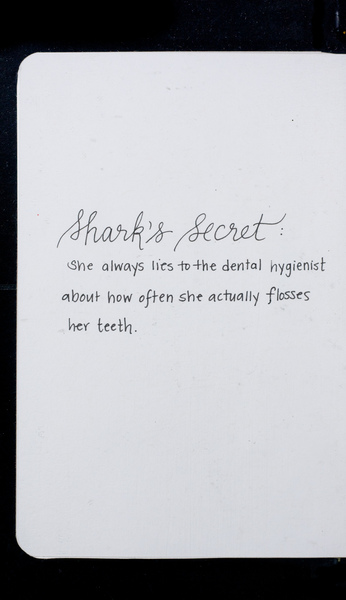 Shark's Secret:
She always lies to the dental hygienist
about how often she actually flosses
her teeth.